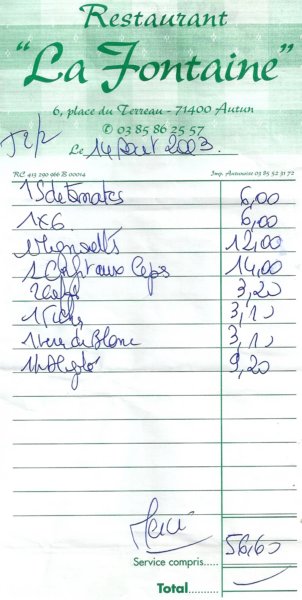 Restaurant
"La Fontaine"
6, place du Terreau - 71400 Autun
✆ 03 85 86 25 57
Le 14 Aout 2003
RC 413 290 966 B 00014 Imp. Autunoise 03 85 52 31 72
1 S de tomates 6,00
1 K6 6,00
1 Mignonetts 12,00
1 aux Ceps 14,00
2 Cafés 3,20
1 3,10
1 verre de Blanc 3,10
1 9,20
Merci
Service compris..... 56,60
Total..........